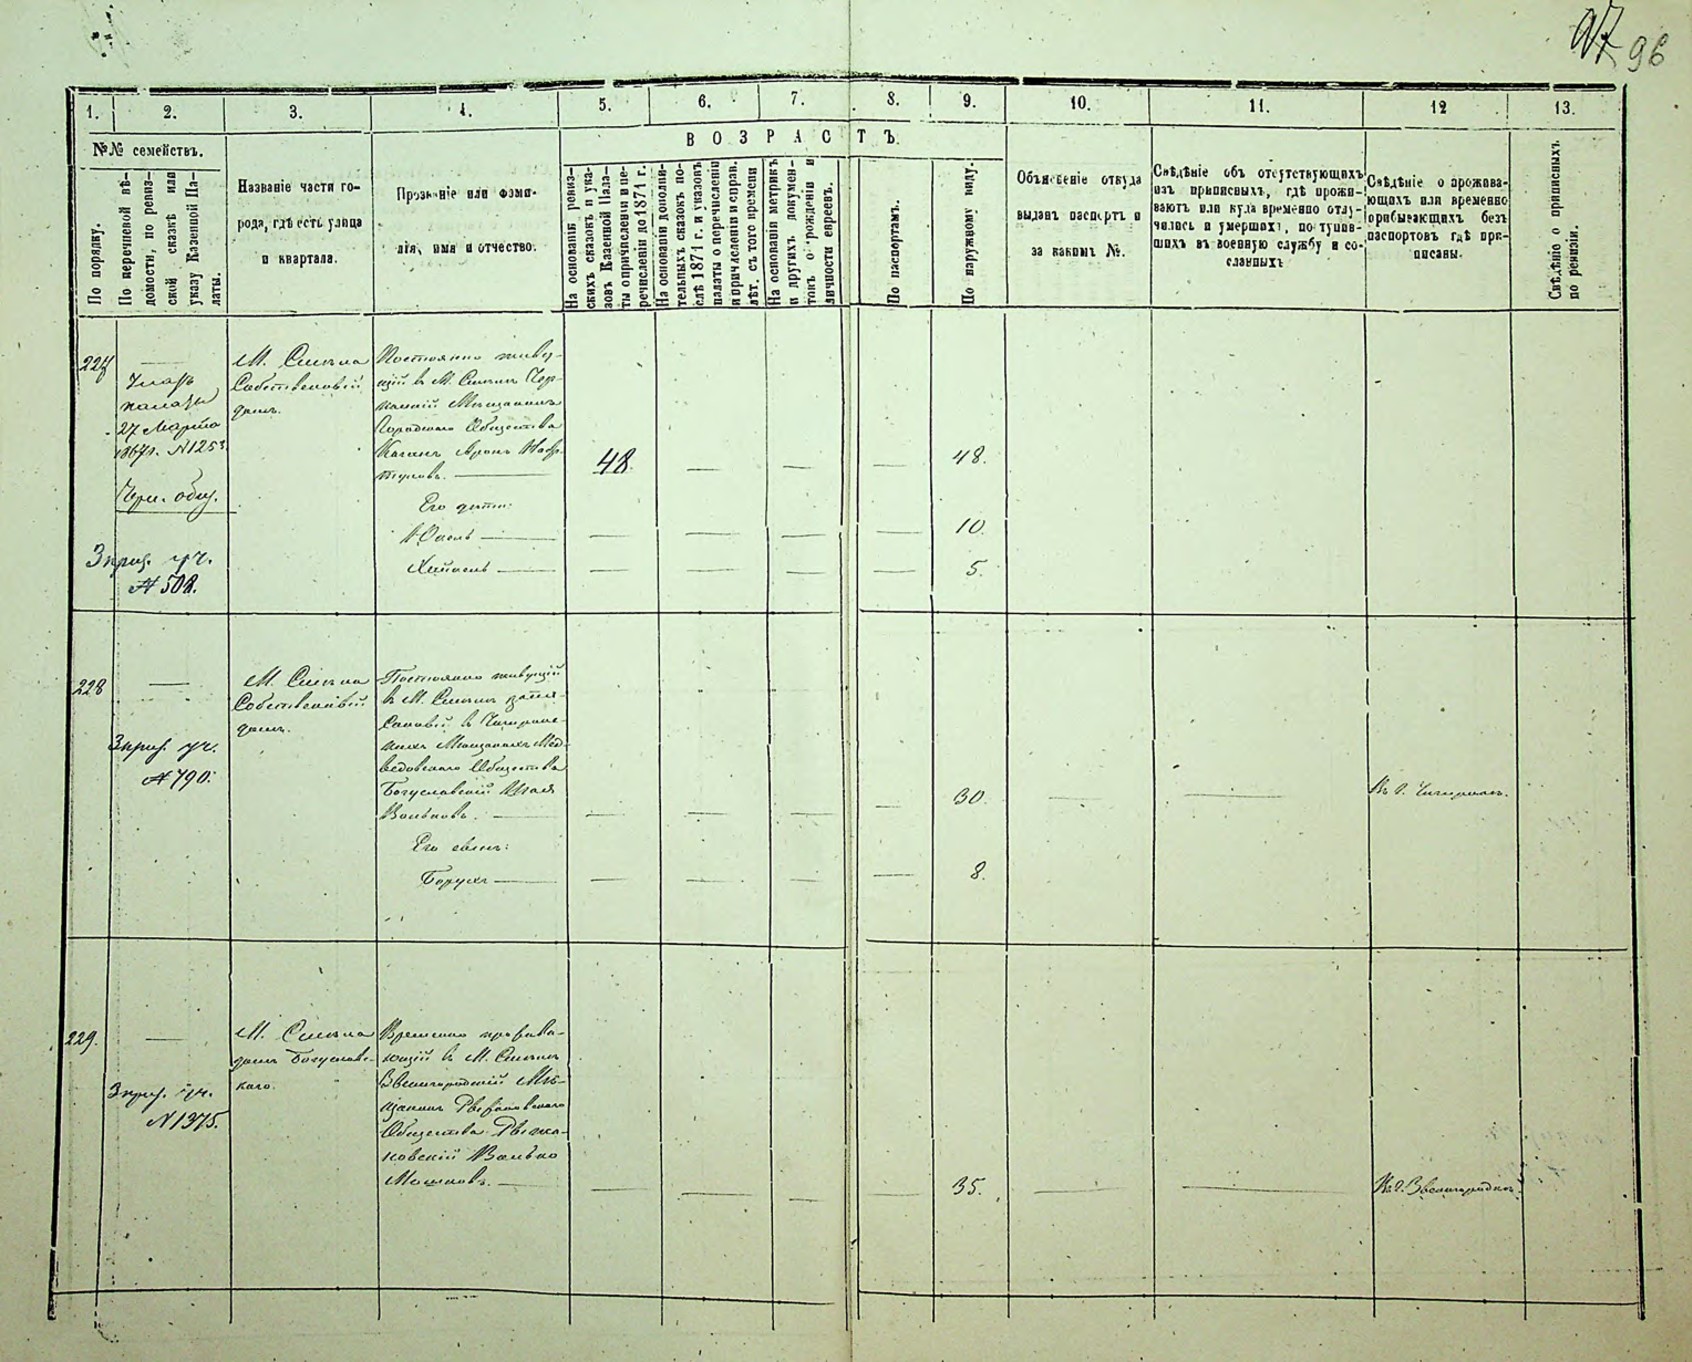 97 96
1. 2. 3. 4. 5. 6. 7. 8. 9. 10. 11. 12 13.
№№ семействъ.
ВОЗРАСТЪ.
По порядку.
По перечневой вѣ-
домости, по ревиз-
ской сказкѣ или
указу Казенной Па-
латы.
Названіе части го-
рода, гдѣ есть улица
и квартала.
Прозваніе или фами-
лія, имя и отчество.
На основаніи ревиз-
скихъ сказокъ и ука-
зовъ Казенной Пала-
ты о причисленіи и пе-
речисленіи до 1871 г.
На основаніи дополни-
тельныхъ сказокъ по-
слѣ 1871 г. и указовъ
палаты о перечисленіи
и причисленіи и справ.
лѣт. съ того времени
На основаніи метрикъ
и другихъ докумен-
товъ о рожденіи и
личности евреевъ.
По паспортамъ.
По наружному виду.
Объясненіе откуда
выданъ паспортъ и
за какимъ №.
Свѣдѣніе объ отсутствующихъ
изъ приписныхъ, гдѣ прожи-
ваютъ или куда временно отлу-
чились и умершихъ, поступив-
шихъ въ военную службу и со-
сланныхъ
Свѣдѣніе о прожива-
ющихъ или временно
прибывающихъ безъ
паспортовъ гдѣ при-
писаны.
Свѣдѣніе о приписныхъ
по ревизіи.
227
Указъ
палаты
27 Марта
1867г. N1253
Чрк. общ.
3 приз. уч.
№ 508.
М. Смѣла
Собственный
домъ.
Постоянно живу-
щій въ М. Смѣлѣ Чер-
каскій Мѣщанинъ
Городского Общества
Каганъ Аронъ
Его дѣти:
Хаймъ
48. 48.
10.
5.
228
3 приз. уч.
№ 790.
М. Смѣла
Собственный
домъ.
Постоянно живущій
въ М. Смѣлѣ запи-
санный въ Чигирин-
скихъ Мѣщанахъ Мед-
ведовскаго Общества
Богуславскій
Вольковъ.
Его сынъ:
Борухъ
30.
8.
Въ г. Чигиринѣ.
229.
3 приз. уч.
N 1375.
М. Смѣла
домъ Богуслав-
скаго.
Временно прожива-
ющій въ М. Смѣлѣ
Звенигородскій Мѣ-
щанинъ
Общества
Волько
Мошковъ.
35.
Въ г. Звенигородкѣ.